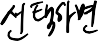 선택하면